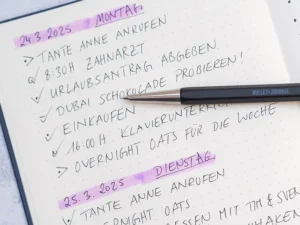 24.3.2025 MONTAG
> TANTE ANNE ANRUFEN
8:30H ZAHNARZT
✓ URLAUBSANTRAG ABGEBEN
✓ DUBAI SCHOKOLADE PROBIEREN!
✓ EINKAUFEN
✓ 16:00H KLAVIERUNTERR
> OVERNIGHT OATS FÜR DIE WOCHE
25.3.2025 DIENSTAG
✓ TANTE ANNE ANRUFEN
✓ OVERNIGHT OATS
ESSEN MIT TIM & SVEN